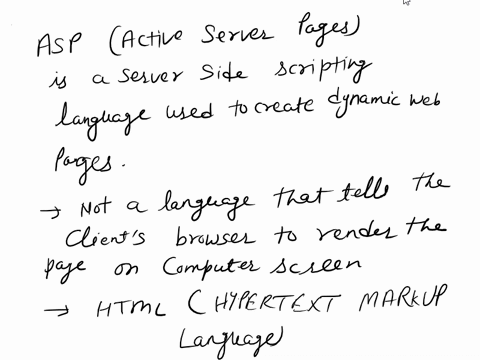 ASP (Active Server Pages)
is a Server Side scripting
language used to create dynamic web
Pages.
→ Not a language that tells the
Client's browser to render the
page on Computer screen
→ HTML (HYPERTEXT MARKUP
Language)